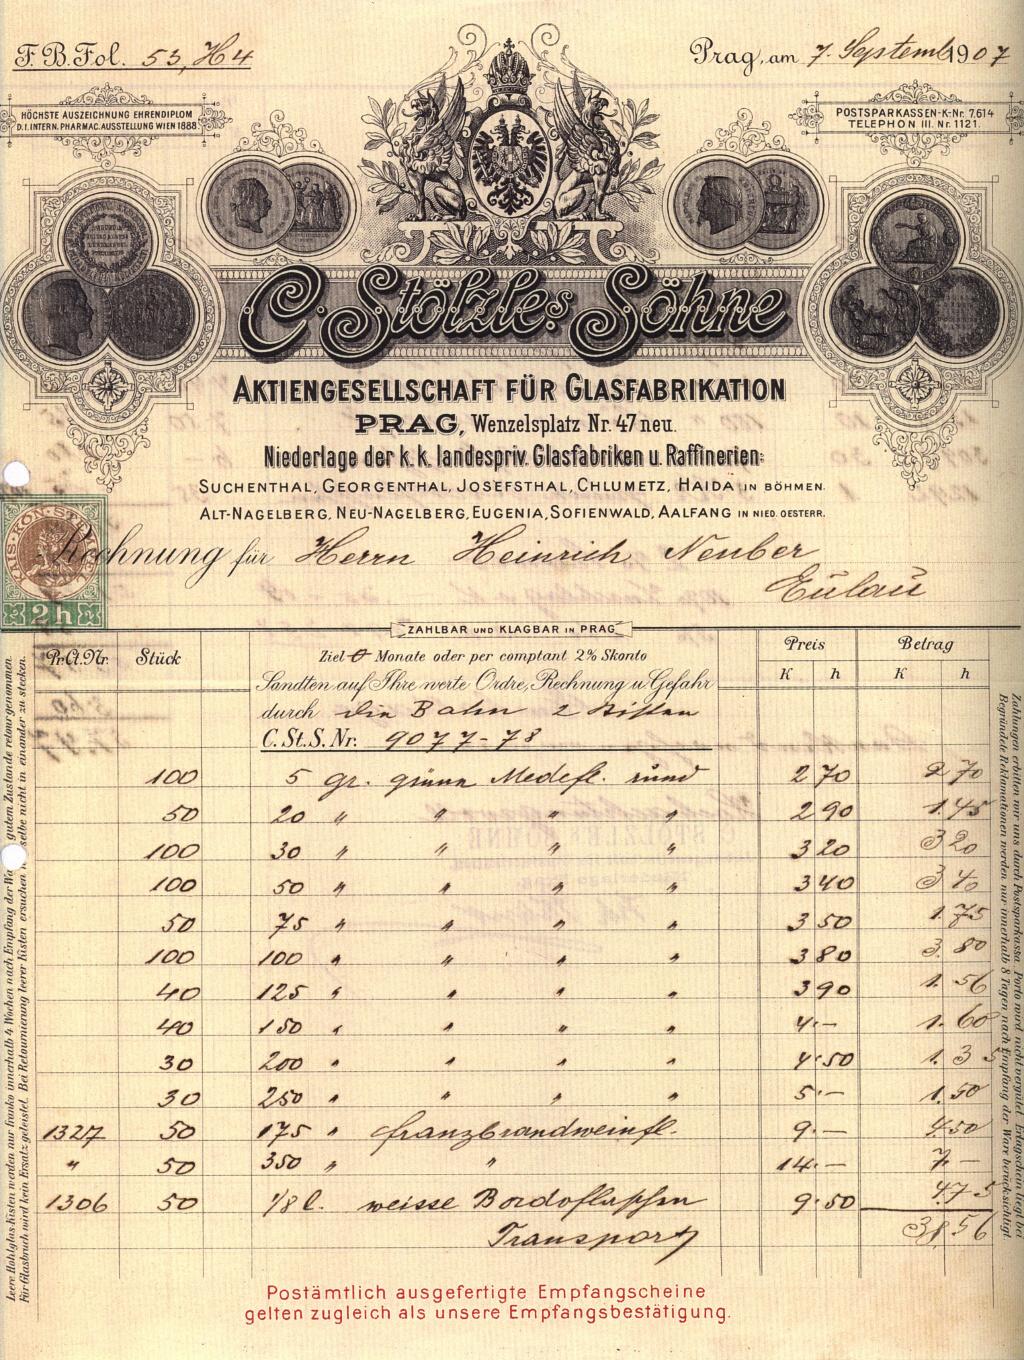 F. B. Fol. 53, H4
Prag, am 7. Septemb 1907
HÖCHSTE AUSZEICHNUNG EHRENDIPLOM
D. I. INTERN. PHARMAC. AUSSTELLUNG WIEN 1888
POSTSPARKASSEN-K-Nr. 7,614
TELEPHON III. Nr. 1121.
C. Stölzle's Söhne
AKTIENGESELLSCHAFT FÜR GLASFABRIKATION
PRAG, Wenzelsplatz Nr. 47 neu.
Niederlage der k. k. landespriv. Glasfabriken u. Raffinerien:
SUCHENTHAL, GEORGENTHAL, JOSEFSTHAL, CHLUMETZ, HAIDA IN BÖHMEN.
ALT-NAGELBERG, NEU-NAGELBERG, EUGENIA, SOFIENWALD, AALFANG IN NIED. OESTERR.
Rechnung für Herrn Heinrich Neuber
Eulau
2 h
ZAHLBAR UND KLAGBAR IN PRAG
Pr. Ct. Nr. Stück Preis Betrag
K h K h
Ziel 0 Monate oder per comptant 2% Skonto
Sandten auf Ihre werte Ordre, Rechnung u. Gefahr
durch die Bahn 2 Kisten
C. St. S. Nr. 9077-78
100 5 gr. grüne Medefl. rund 2 70 2 70
50 20 " " " " 2 90 1.45
100 30 " " " " 3 20 3 20
100 50 " " " " 3 40 3 40
50 75 " " " " 3 50 1.75
100 100 " " " " 3 80 3.80
40 125 " " " " 3 90 1.56
40 150 " " " " 4.– 1.60
30 200 " " " " 4.50 1.35
30 250 " " " " 5.– 1.50
1327 50 175 " franzbrandweinfl. 9.– 4.50
" 50 350 " " 14.– 7.–
1306 50 1/8 l. weisse Bordoflaschen 9.50 4.75
Transport 38.56
Postämtlich ausgefertigte Empfangscheine
gelten zugleich als unsere Empfangsbestätigung.
Leere Hohlglas-Kisten werden nur franko innerhalb 4 Wochen nach Empfang der Wa guten Zustande retourgenommen.
Für Glasbruch wird kein Ersatz geleistet. Bei Retournierung leerer Kisten ersuchen selbe nicht in einander zu stecken.
Zahlungen erbitten nur uns durch Postsparkassa. Porto wird nicht vergütet. Erlagschein liegt bei
Begründete Reklamationen werden nur innerhalb 8 Tagen nach Empfang der Ware berücksichtigt